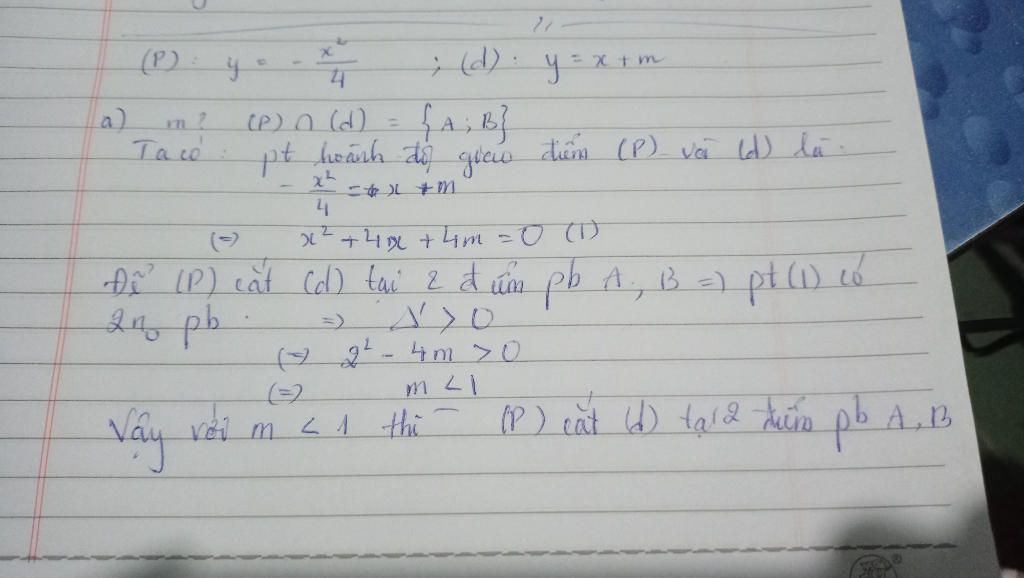 (P): y = - x²/4 ; (d): y = x + m
a) m? (P) ∩ (d) = {A; B}
Ta có: pt hoành độ giao điểm (P) và (d) là:
- x²/4 = x + m
(=) x² + 4x + 4m = 0 (1)
Để (P) cắt (d) tại 2 điểm pb A, B => pt (1) có
2n₀ pb. => Δ' > 0
(=) 2² - 4m > 0
(=) m < 1
Vậy với m < 1 thì (P) cắt (d) tại 2 điểm pb A, B